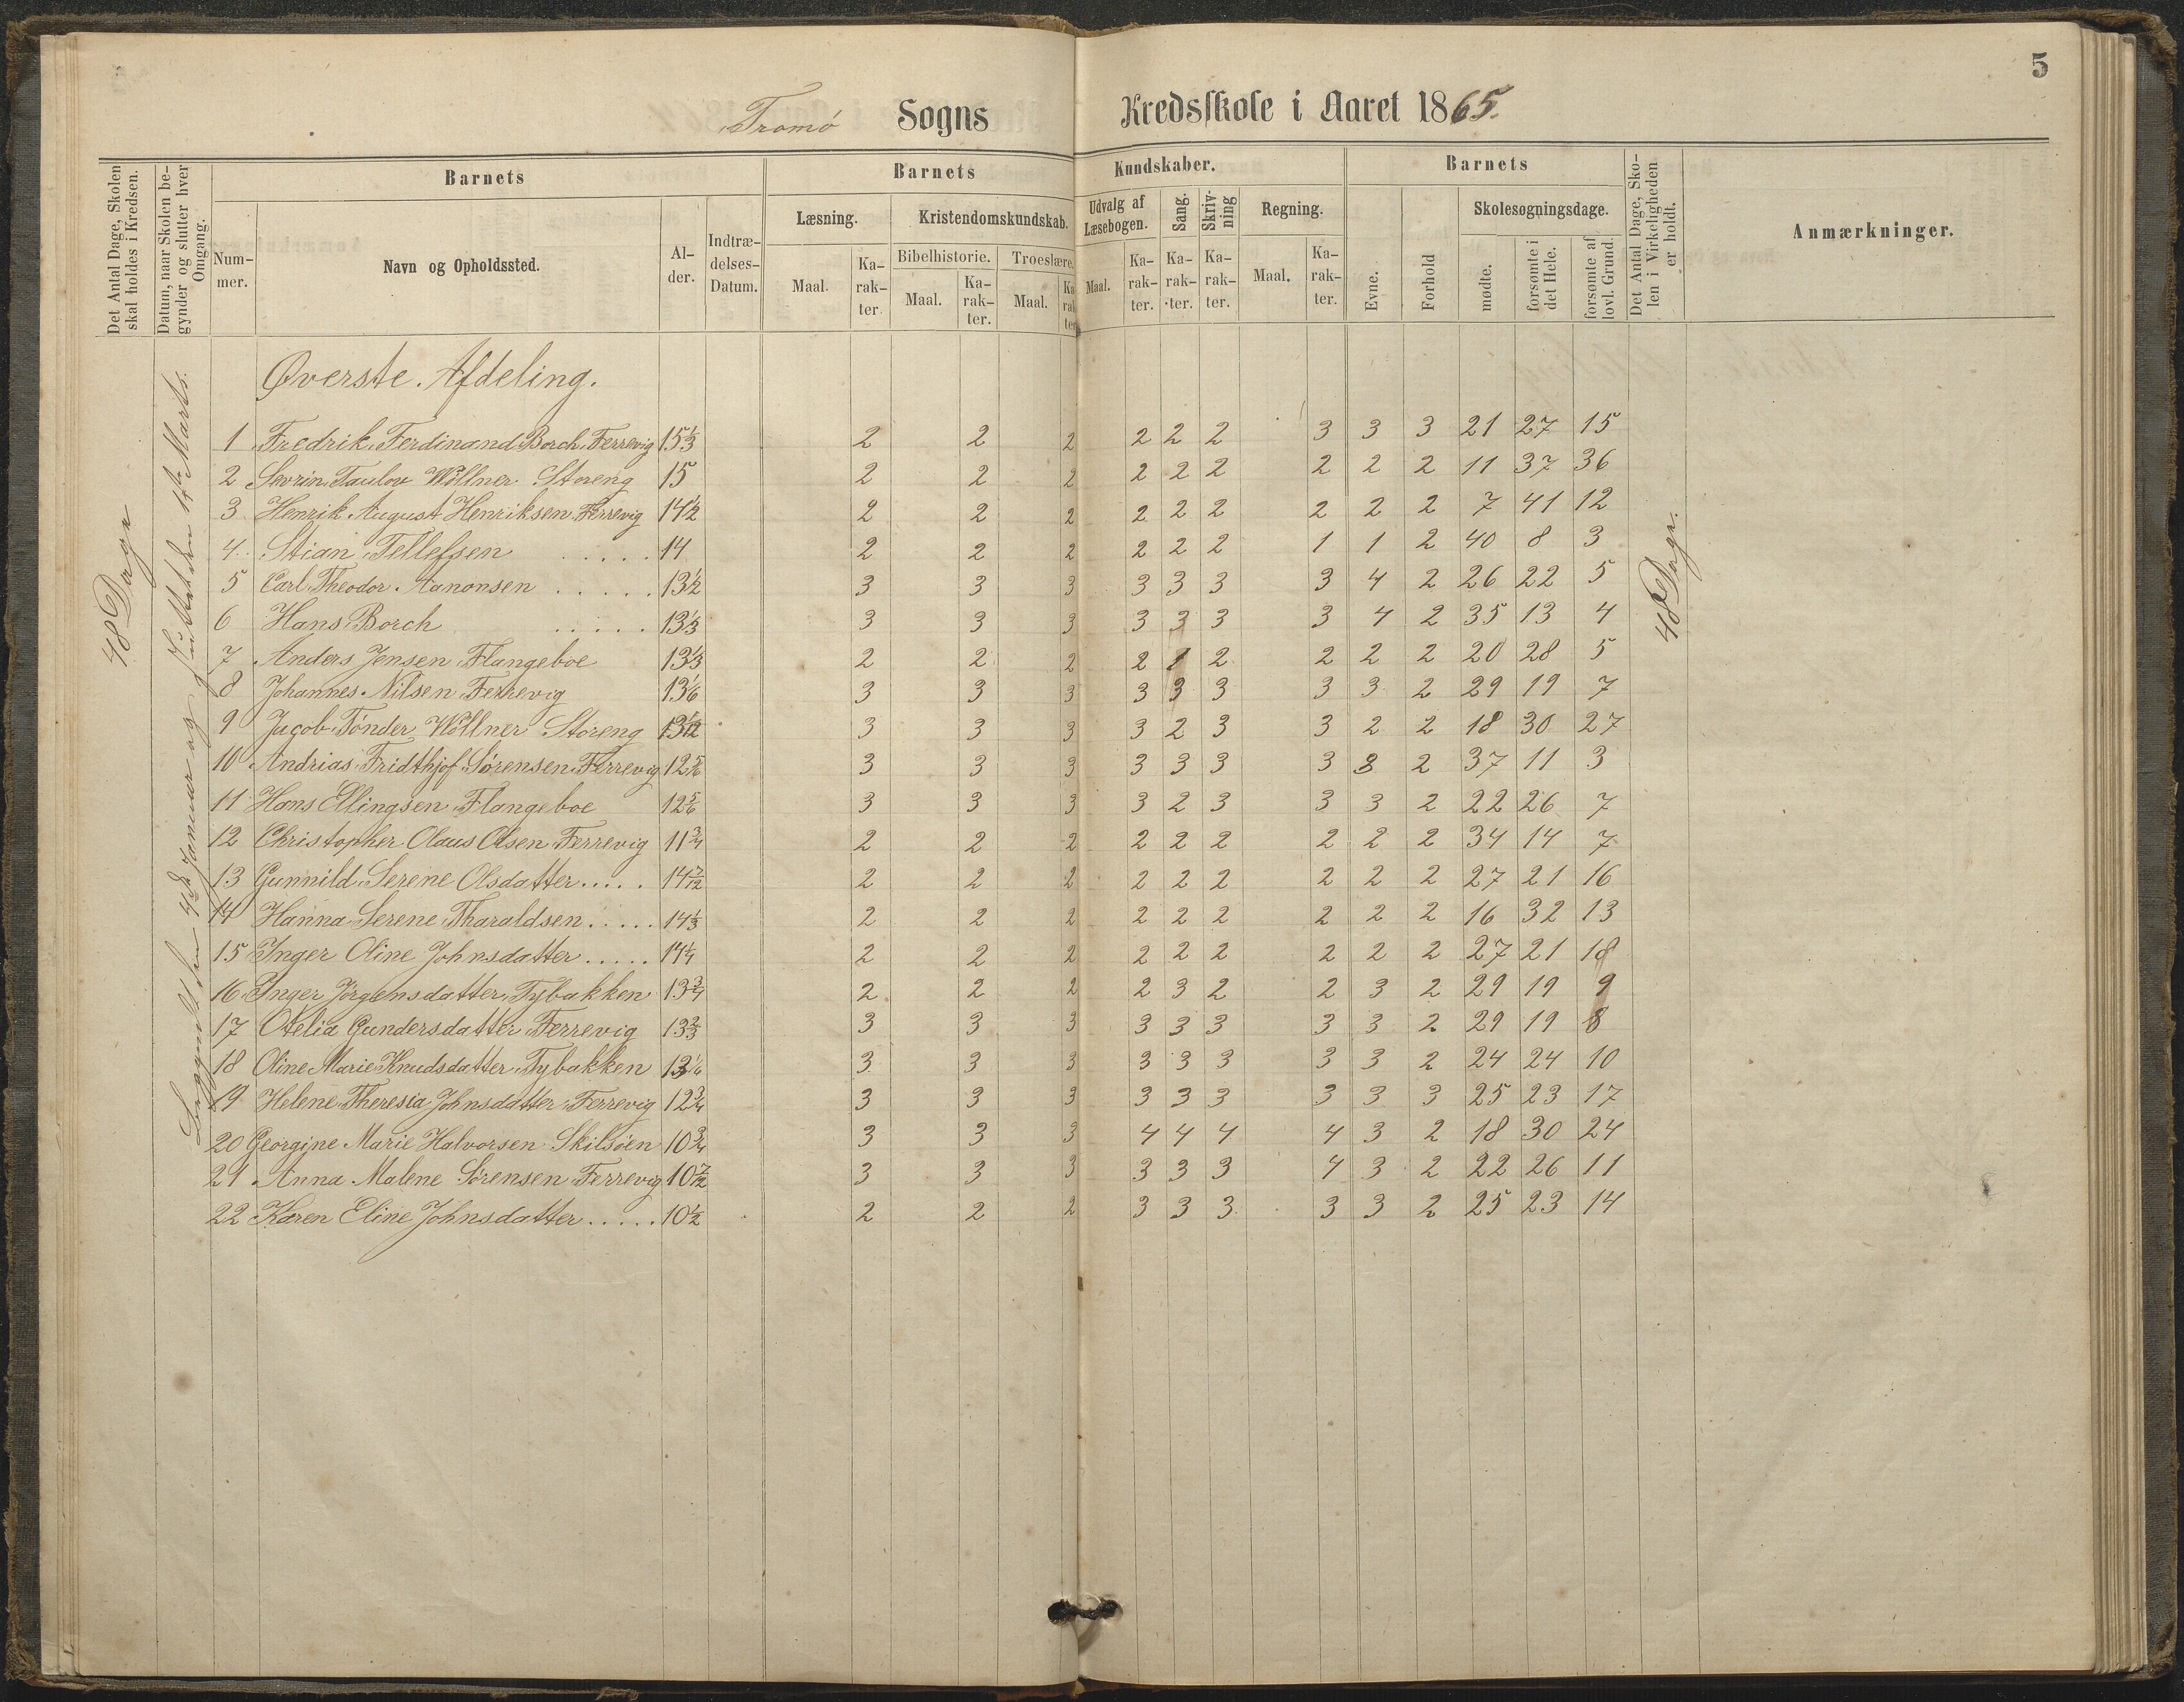 5
Tromø Sogns Kredsskole i Aaret 1865.
Det Antal Dage, Skolen skal holdes i Kredsen.
Datum, naar Skolen begynder og slutter hver Omgang.
Barnets
Barnets Kundskaber.
Barnets
Det Antal Dage, Skolen i Virkeligheden er holdt.
Anmærkninger.
Nummer.
Navn og Opholdssted.
Alder.
Indtrædelses-Datum.
Læsning.
Kristendomskundskab.
Udvalg af Læsebogen.
Sang.
Skrivning
Regning.
Evne.
Forhold
Skolesøgningsdage.
Bibelhistorie.
Troeslære.
Maal.
Karakter.
Maal.
Karakter.
Maal.
Karakter
Maal.
Karakter.
Karakter.
Karakter.
Maal.
Karakter.
mødte.
forsømte i det Hele.
forsømte af lovl. Grund.
48 Dage
Begyndt den 4de Januar og sluttet den 1ste Marts.
48 Dage.
Øverste Afdeling.
1 Fredrik Ferdinand Borch Ferrevig 15 1/3 2 2 2 2 2 2 3 3 3 21 27 15
2 Sevrin Taulov Wöllner Storeng 15 2 2 2 2 2 2 2 2 2 11 37 36
3 Henrik August Henriksen Ferrevig 14 1/2 2 2 2 2 2 2 2 2 2 7 41 12
4 Stian Tellefsen ..... 14 2 2 2 2 2 2 1 1 2 40 8 3
5 Carl Theodor Aanonsen ..... 13 1/2 3 3 3 3 3 3 3 4 2 26 22 5
6 Hans Borch ..... 13 1/3 3 3 3 3 3 3 3 4 2 35 13 4
7 Anders Jensen Flangeboe 13 1/3 2 2 2 2 1 2 2 2 2 20 28 5
8 Johannes Nilsen Ferrevig 13 1/6 3 3 3 3 3 3 3 3 2 29 19 7
9 Jacob Tönder Wöllner Storeng 13 1/12 3 3 3 3 2 3 3 2 2 18 30 27
10 Andrias Fridthjof Sørensen Ferrevig 12 5/6 3 3 3 3 3 3 3 3 2 37 11 3
11 Hans Ellingsen Flangeboe 12 5/6 3 3 3 3 2 3 3 3 2 22 26 7
12 Christopher Olaus Olsen Ferrevig 11 3/4 2 2 2 2 2 2 2 2 2 34 14 7
13 Gunnild Serene Olsdatter ..... 14 7/12 2 2 2 2 2 2 2 2 2 27 21 16
14 Hanna Serene Tharaldsen ..... 14 1/3 2 2 2 2 2 2 2 2 2 16 32 13
15 Inger Oline Johnsdatter ..... 14 1/4 2 2 2 2 2 2 2 2 2 27 21 18
16 Inger Jörgensdatter Tybakken 13 3/4 2 2 2 2 3 2 2 3 2 29 19 9
17 Otelia Gundersdatter Ferrevig 13 2/3 3 3 3 3 3 3 3 3 2 29 19 8
18 Oline Marie Knudsdatter Tybakken 13 1/6 3 3 3 3 3 3 3 3 2 24 24 10
19 Helene Theresia Johnsdatter Ferrevig 12 3/4 3 3 3 3 3 3 3 3 3 25 23 17
20 Georgine Marie Halvorsen Skilsöen 10 3/4 3 3 3 4 4 4 4 3 2 18 30 24
21 Anna Malene Sørensen Ferrevig 10 7/12 3 3 3 3 3 3 4 3 2 22 26 11
22 Karen Eline Johnsdatter ..... 10 1/2 2 2 2 3 3 3 3 3 2 25 23 14